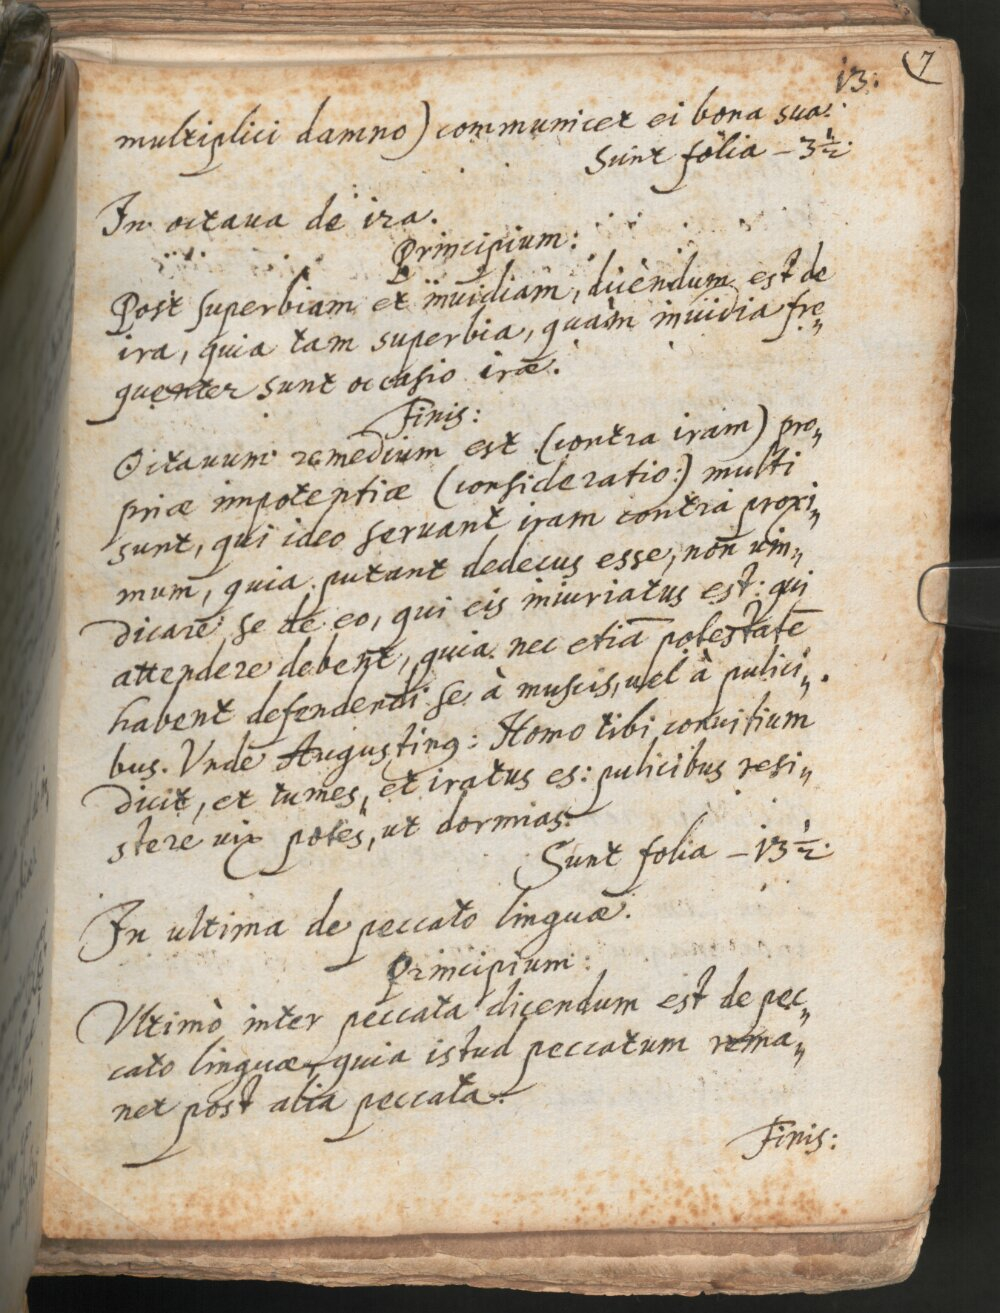 7
13.
multiplici damno) communicet ei bona sua.
Sunt folia – 3½.
In octaua de ira.
Principium:
Post superbiam et inuidiam, dicendum est de
ira, quia tam superbia, quàm inuidia fre„
quenter sunt occasio iræ.
Finis:
Octauum remedium est (contra iram) pro„
priæ impotentiæ (consideratio:) multi
sunt, qui ideo seruant iram contra proxi„
mum, quia putant dedecus esse, non uin„
dicare se de eo, qui eis iniuriatus est: qui
attendere debent, quia nec etiã potestatẽ
habent defendendi se à muscis, uel à pulici„
bus. Vnde Augustinꝰ: Homo tibi conuitium
dicit, et tumes, et iratus es: pulicibus resi„
stere uix potes, ut dormias.
Sunt folia – 13½.
In ultima de peccato linguæ.
Principium:
Vltimò inter peccata dicendum est de pec„
cato linguæ, quia istud peccatum rema„
net post alia peccata.
Finis: